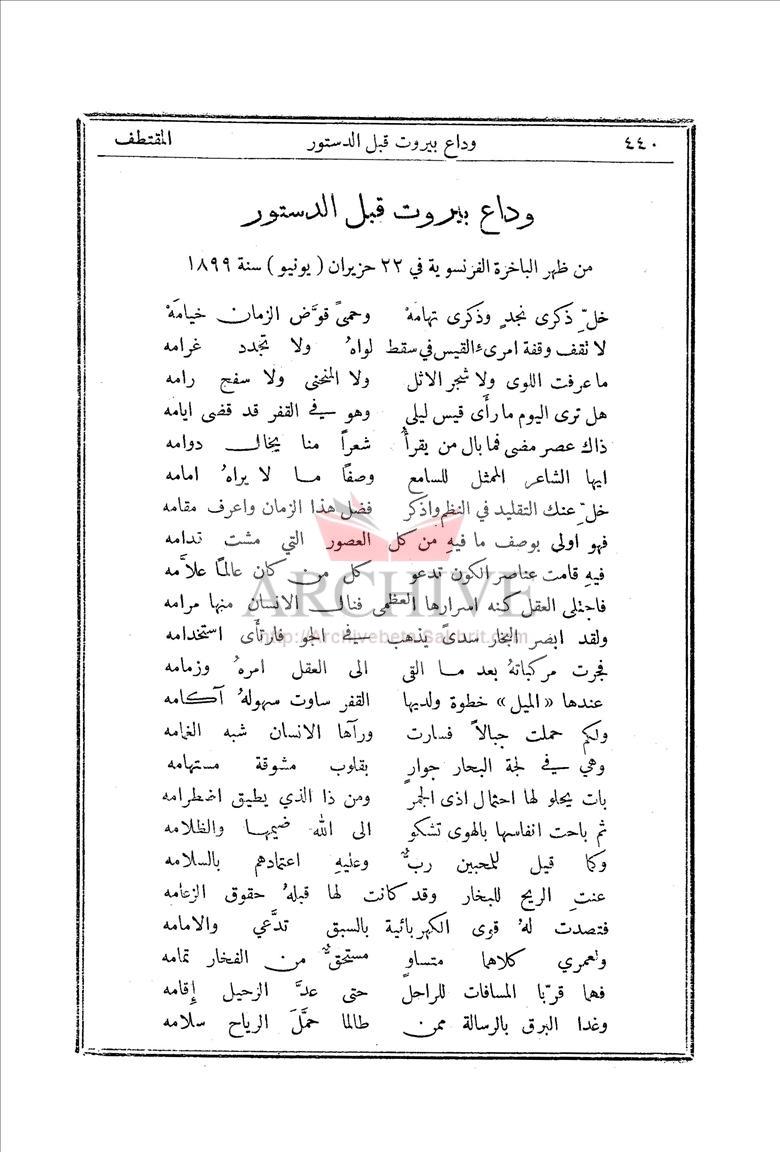 ٤٤٠ وداع بيروت قبل الدستور المقتطف
وداع بيروت قبل الدستور
من ظهر الباخرة الفرنسوية في ٢٢ حزيران ( يونيو ) سنة ١٨٩٩
خلّ ذكرى نجدٍ وذكرى تهامهْ وحمىً قوَّض الزمان خيامَهْ
لا نقف وقفة امرىء القيس في سقط لواهُ ولا تجدد غرامه
ما عرفت اللوى ولا شجر الاثل ولا المنحنى ولا سفح رامه
هل ترى اليوم ما رأَى قيس ليلى وهو في القفر قد قضى ايامه
ذاك عصر مضى فما بال من يقرأُ شعراً منا يخال دوامه
ايها الشاعر الممثل للسامع وصفًا ما لا يراهُ امامه
خلّ عنك التقليد في النظم واذكر فضل هذا الزمان واعرف مقامه
فهو اولى بوصف ما فيهِ من كل العصور التي مشت قدامه
فيهِ قامت عناصر الكون تدعو كل من كان عالمًا علاَّمه
فاجتلى العقل كنه اسرارها العظمى فنال الانسان منها مرامه
ولقد ابصر البخار سدىً يذهب في الجو فارتأَى استخدامه
فجرت مركباتهُ بعد ما القى الى العقل امرهُ وزمامه
عندها «الميل» خطوة ولديها القفر ساوت سهولهُ آكامه
ولكم حملت جبالاً فسارت ورآها الانسان شبه الغمامه
وهي في لجة البحار جوارٍ بقلوب مشوقة مستهامه
بات يحلو لها احتمال اذى الجمر ومن ذا الذي يطيق اضطرامه
ثم باحت انفاسها بالهوى تشكو الى الله ضيمها والظلامه
وكما قيل للمحبين ربٌّ وعليهِ اعتمادهم بالسلامه
عنتِ الريح للبخار وقد كانت لها قبلهُ حقوق الزعامه
فتصدت لهُ قوى الكهربائية بالسبق تدَّعي والامامه
ولعمري كلاهما متساوٍ مستحقٌّ من الفخار تمامه
فهما قرّبا المسافات للراحل حتى عدَّ الرحيل إقامه
وغدا البرق بالرسالة ممن طالما حمَّلَ الرياح سلامه
ARCHIVE
http://Archivebeta.Sakhrit.com